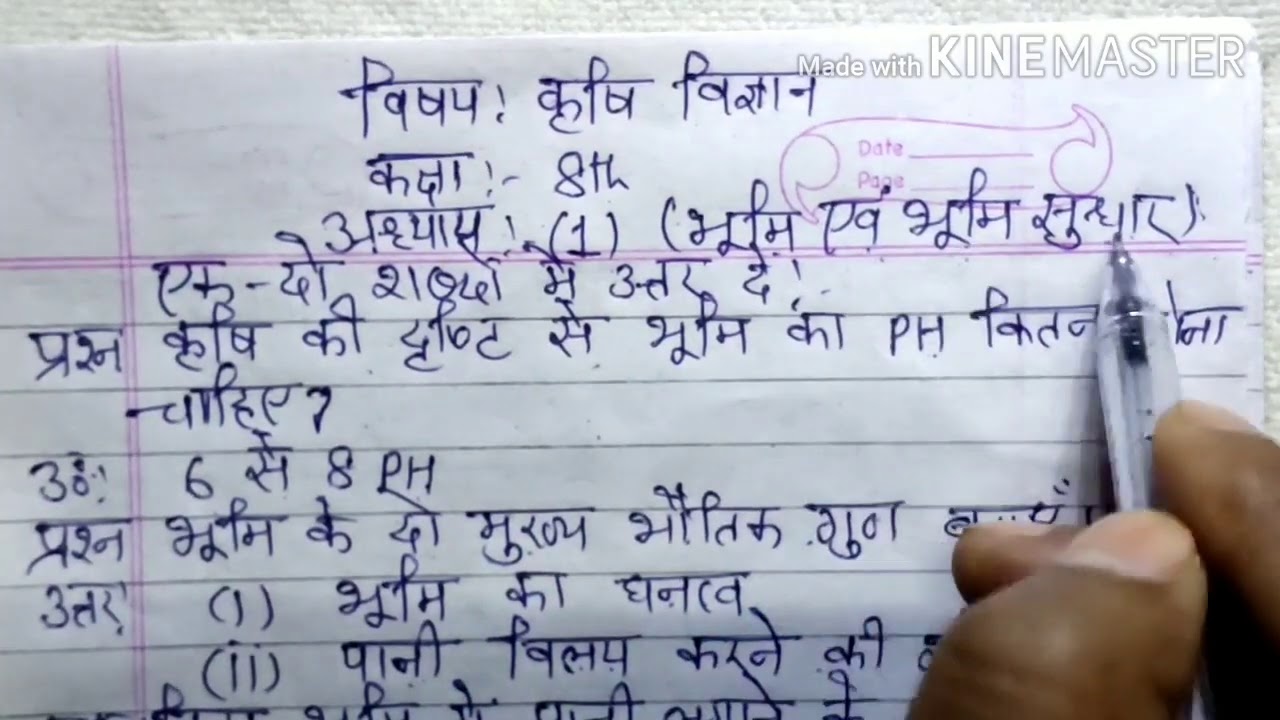 Made with KINEMASTER
विषय: कृषि विज्ञान
Date
कक्षा:- 8th
Page
अभ्यास:- (1) (भूमि एवं भूमि सुधार)
एक-दो शब्दों में उत्तर दें:-
प्रश्न कृषि की दृष्टि से भूमि का PH
चाहिए?
उ०: 6 से 8 PH
प्रश्न भूमि के दो मुख्य भौतिक गुण
उत्तर: (i) भूमि का घनत्व
(ii) पानी विलय करने की
भूमि में पानी लगाने के